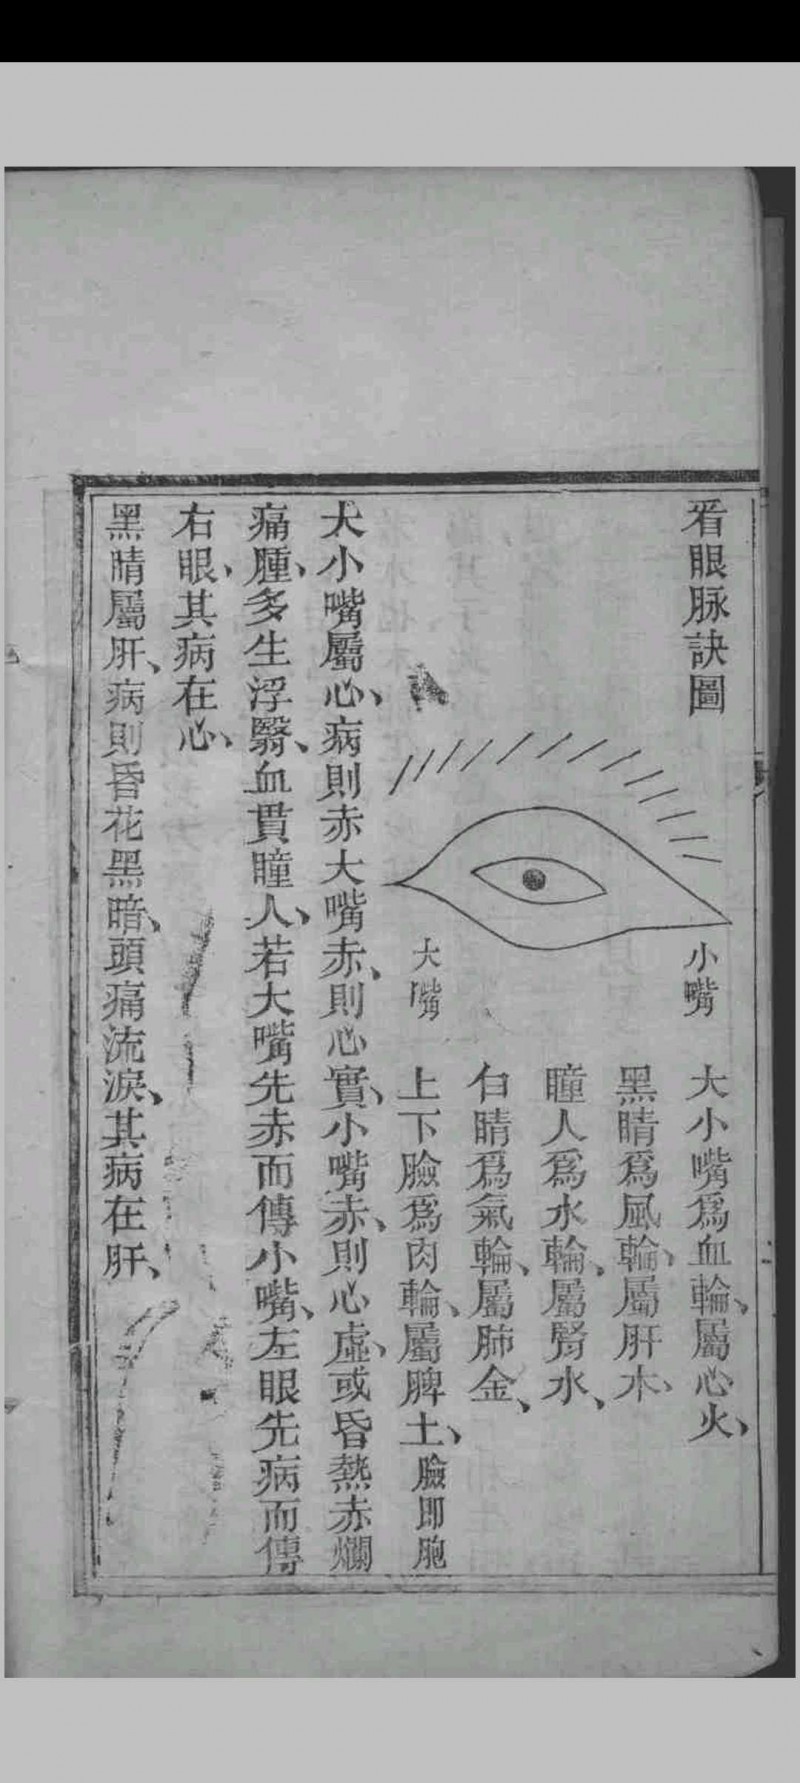 看眼脉訣圖
小嘴
大嘴
大小嘴爲血輪、屬心火、
黑睛爲風輪、屬肝木、
瞳人爲水輪、屬腎水、
白睛爲氣輪、屬肺金、
上下臉爲肉輪、屬脾土、臉即胞
大小嘴屬心、病則赤大嘴赤、則心實、小嘴赤、則心虛、或昏熱赤爛
痛腫、多生浮翳、血貫瞳人、若大嘴先赤而傳小嘴、左眼先病而傳
右眼、其病在心、
黑睛屬肝、病則昏花黑暗、頭痛流淚、其病在肝、